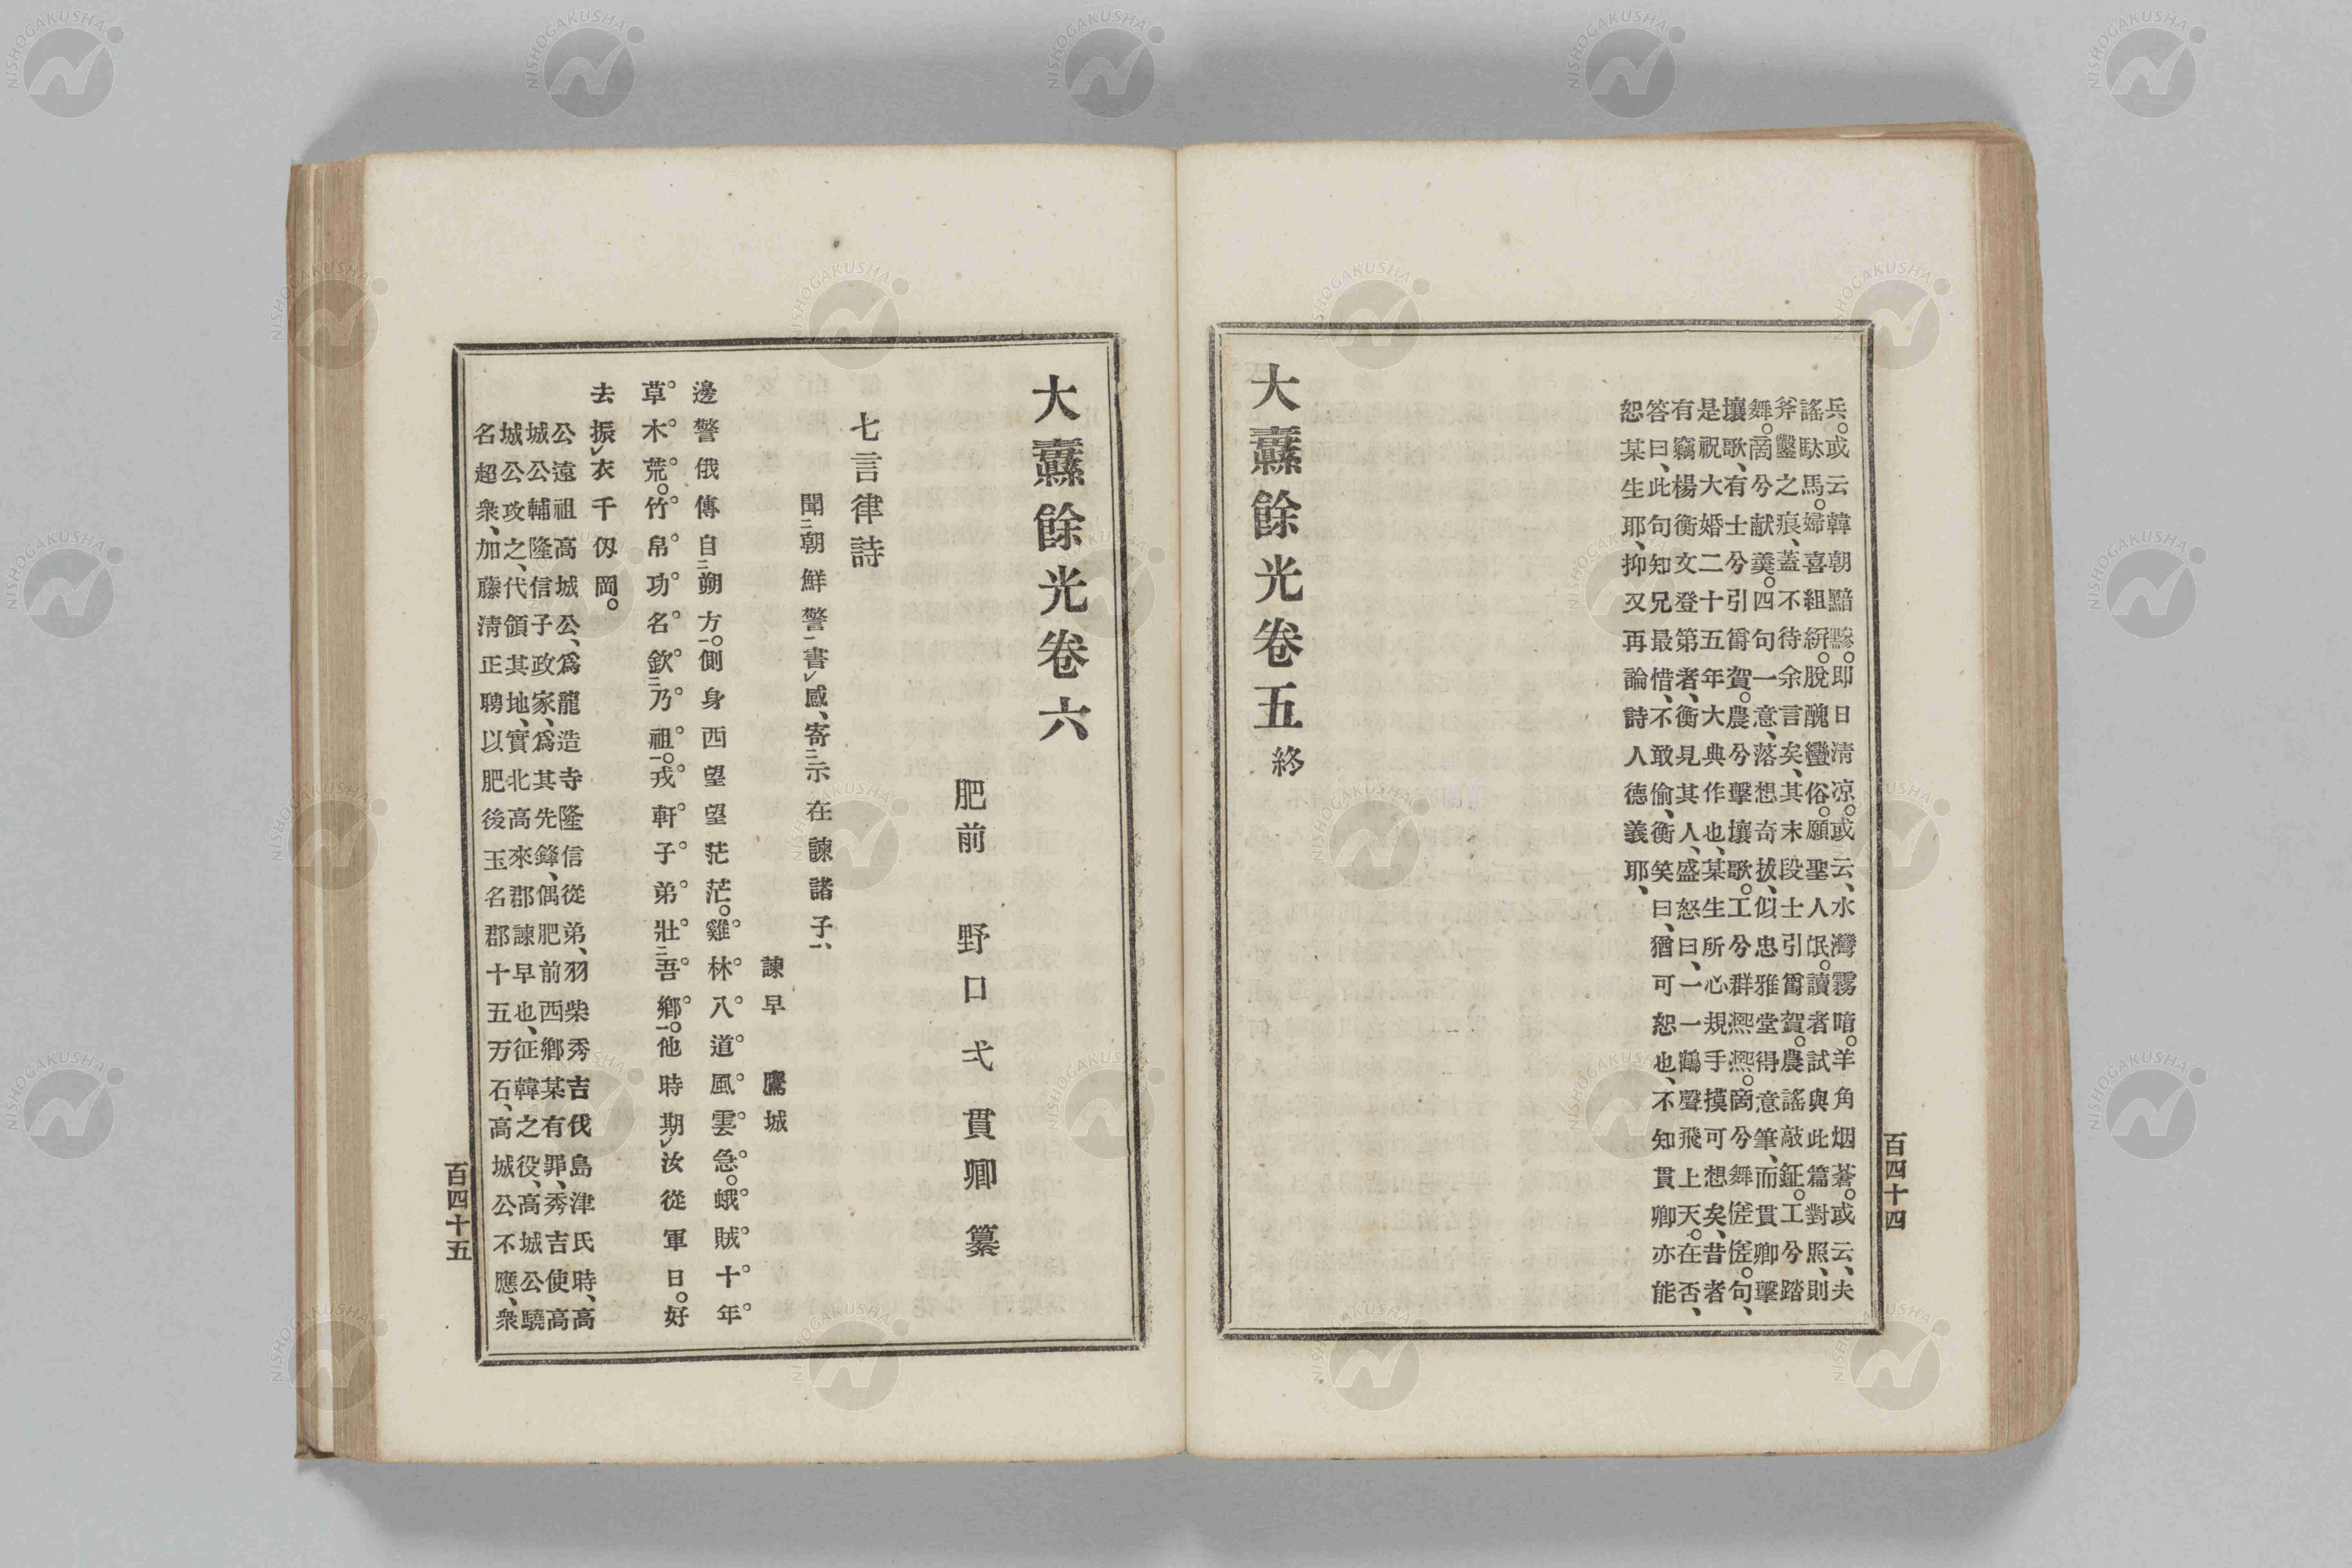 兵。或云韓朝黯黲。即日淸凉。或云、水灣霧暗。羊角烟蒼。或云、夫
謠駄馬。婦喜組絣。脫醜蠻俗。願聖人氓。讀者試與此篇對照、則
斧鑿之痕、蓋不待余言矣、其末段士引觴賀。農謠敲鉦。工兮踏
舞。商兮献羮。四句一意、落想奇拔、似忠雅堂得意筆、而貫卿擊
壤歌、有士兮引觴賀。農兮擊壤歌。工兮群熈熈。商兮舞傞傞。句、
是祝大婚二十五年大典作也、某生所心規手摸可想矣、昔者
有竊楊衡文登第者、衡見其人、盛怒曰、一一鶴聲飛上天。在否、
答曰、此句知兄最惜、不敢偷、衡笑曰、猶可恕也、不知貫卿亦能
恕某生耶、抑又再論詩人德義耶、
大纛餘光卷五終
百四十四
大纛餘光卷六
肥前 野口弌貫卿纂
七言律詩
聞二朝鮮警一書レ感、寄二示在諫諸子一、
諫早 鷹城
邊警俄傳自二朔方一。側身西望望茫茫。雞林八道風雲急。蛾賊十年
草木荒。竹帛功名欽二乃祖一。戎軒子弟壯二吾鄉一。他時期レ汝從軍日。好
去振レ衣千仭岡。
公遠祖高城公、爲龍造寺隆信從弟、羽柴秀吉伐島津氏時、高
城公輔隆信子政家、爲其先鋒、偶肥前西鄉某有罪、秀吉使高
城公攻之、代領其地、實北高來郡諫早也、征韓之役、高城公驍
名超衆、加藤淸正聘以肥後玉名郡十五万石、高城公不應、衆
百四十五